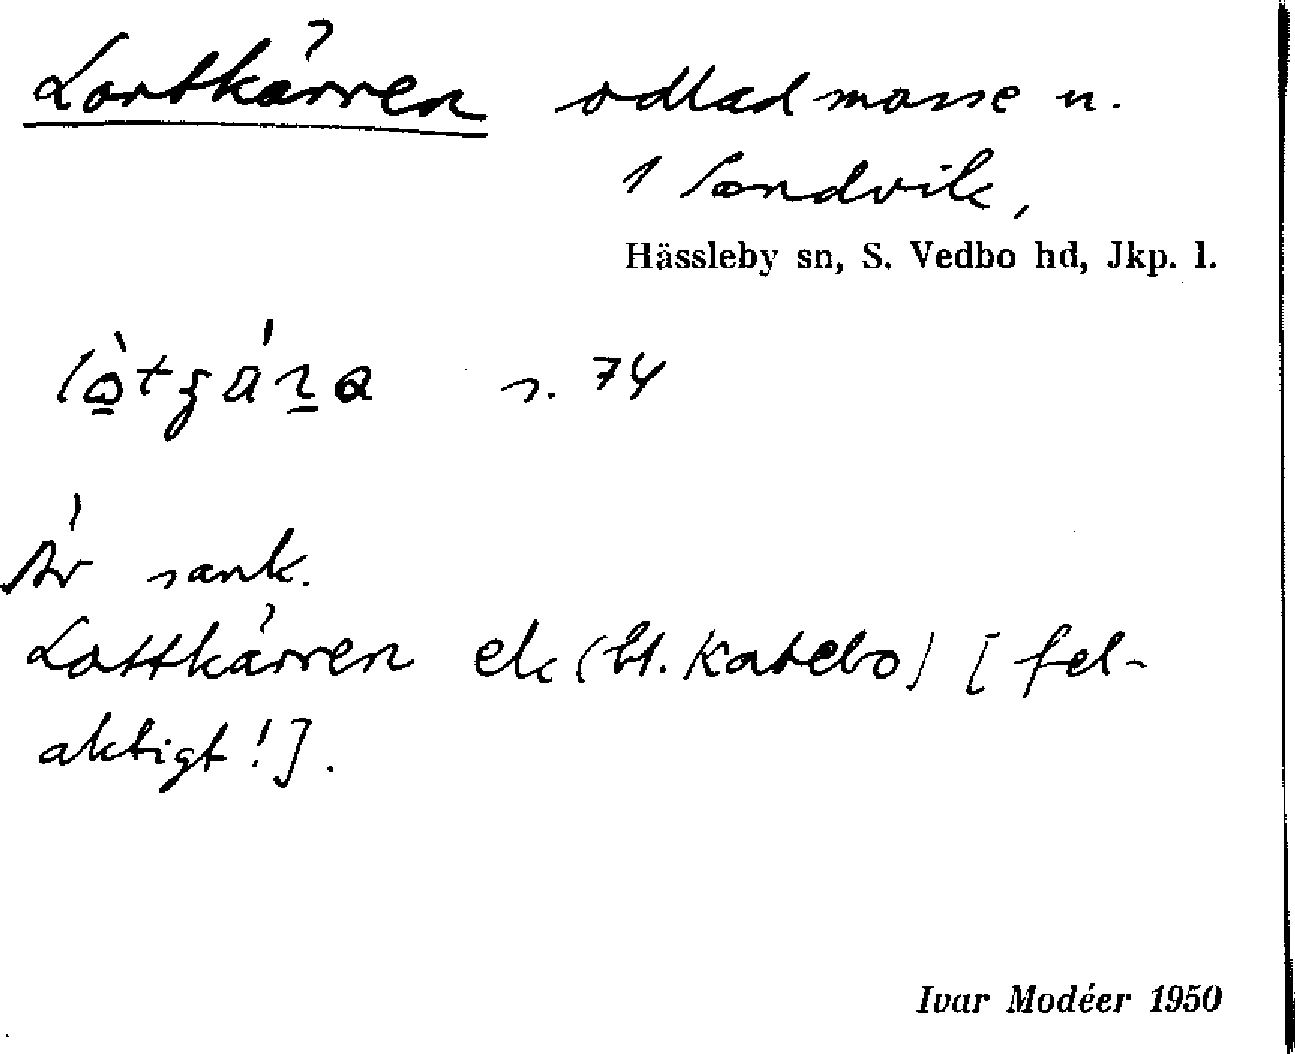 Lortkärren odlad mosse n.
1 Sandvik,
Hässleby sn, S. Vedbo hd, Jkp. l.
s. 74
Är sank.
Lottkärren ek (bl. Katebo) [fel-
aktigt!].
Ivar Modéer 1950